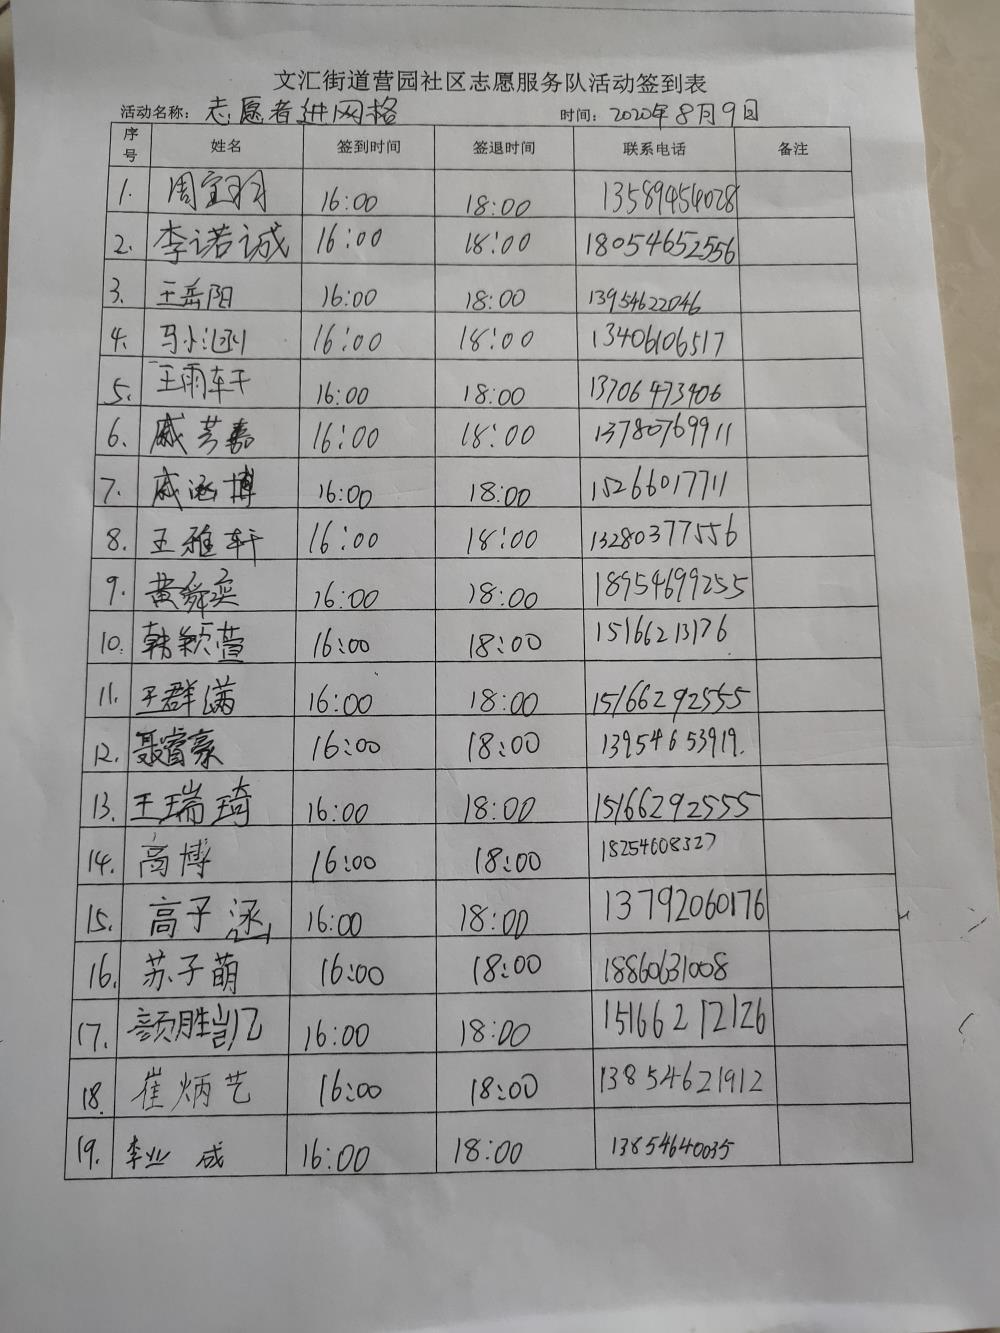 文汇街道营园社区志愿服务队活动签到表
活动名称：志愿者进网格 时间：2020年8月9日
序号 姓名 签到时间 签退时间 联系电话 备注
1. 周宝羽 16:00 18:00 13589454028
2. 李诺诚 16:00 18:00 18054652556
3. 王岳阳 16:00 18:00 13954622046
4. 马小涵 16:00 18:00 13406106517
5. 王雨轩 16:00 18:00 13706473406
6. 戚芳嘉 16:00 18:00 13780769911
7. 戚涵博 16:00 18:00 15266017711
8. 王雅轩 16:00 18:00 13280377556
9. 黄舜奕 16:00 18:00 18954699255
10. 韩颖萱 16:00 18:00 15166213176
11. 王群满 16:00 18:00 15166292555
12. 聂睿豪 16:00 18:00 13954653919.
13. 王瑞琦 16:00 18:00 15166292555
14. 高博 16:00 18:00 18254608327
15. 高子涵 16:00 18:00 13792060176
16. 苏子萌 16:00 18:00 18860631008
17. 颜胜凯 16:00 18:00 15166212126
18. 崔炳艺 16:00 18:00 13854621912
19. 李业成 16:00 18:00 13854640035